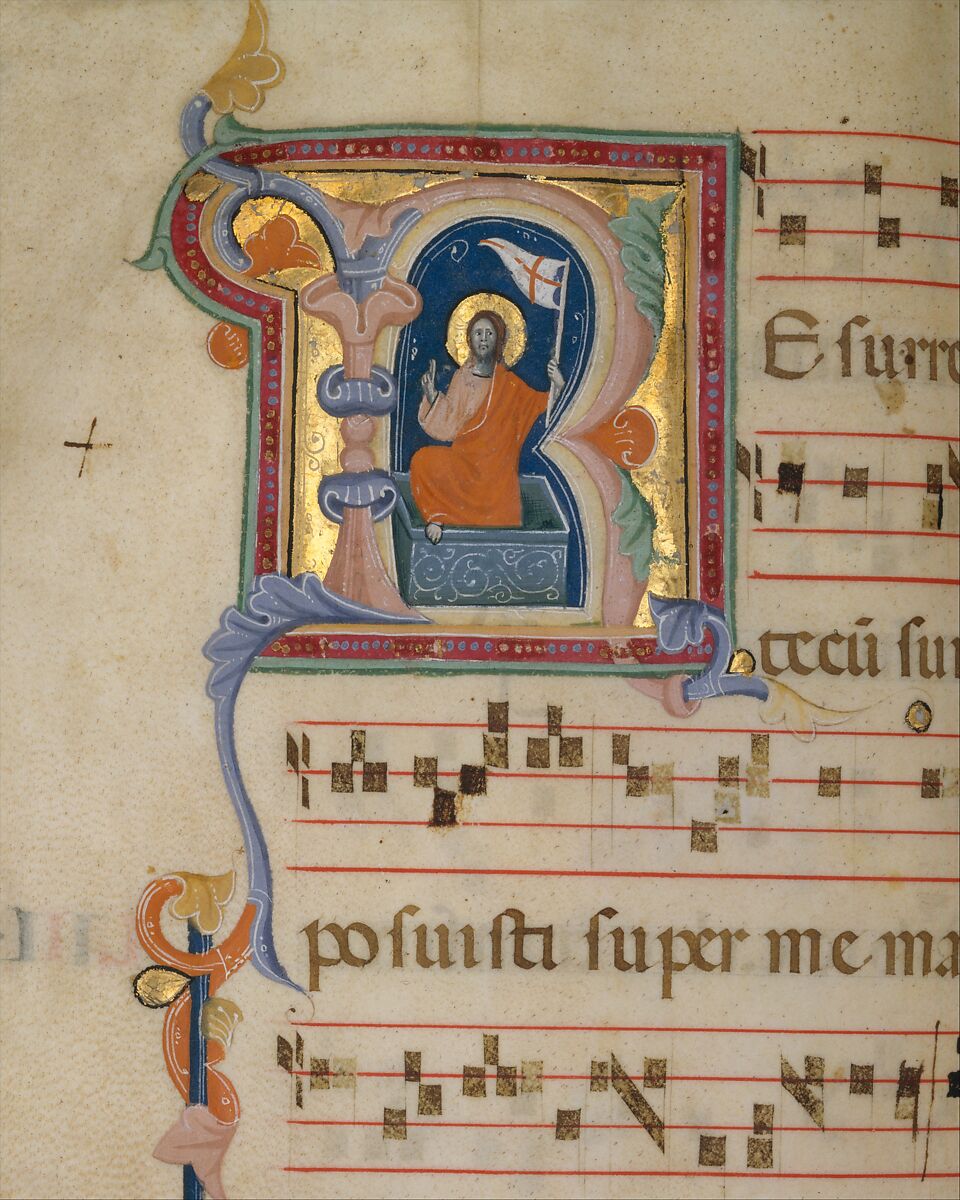 R
Esurre
tecū sum
posuisti super me ma